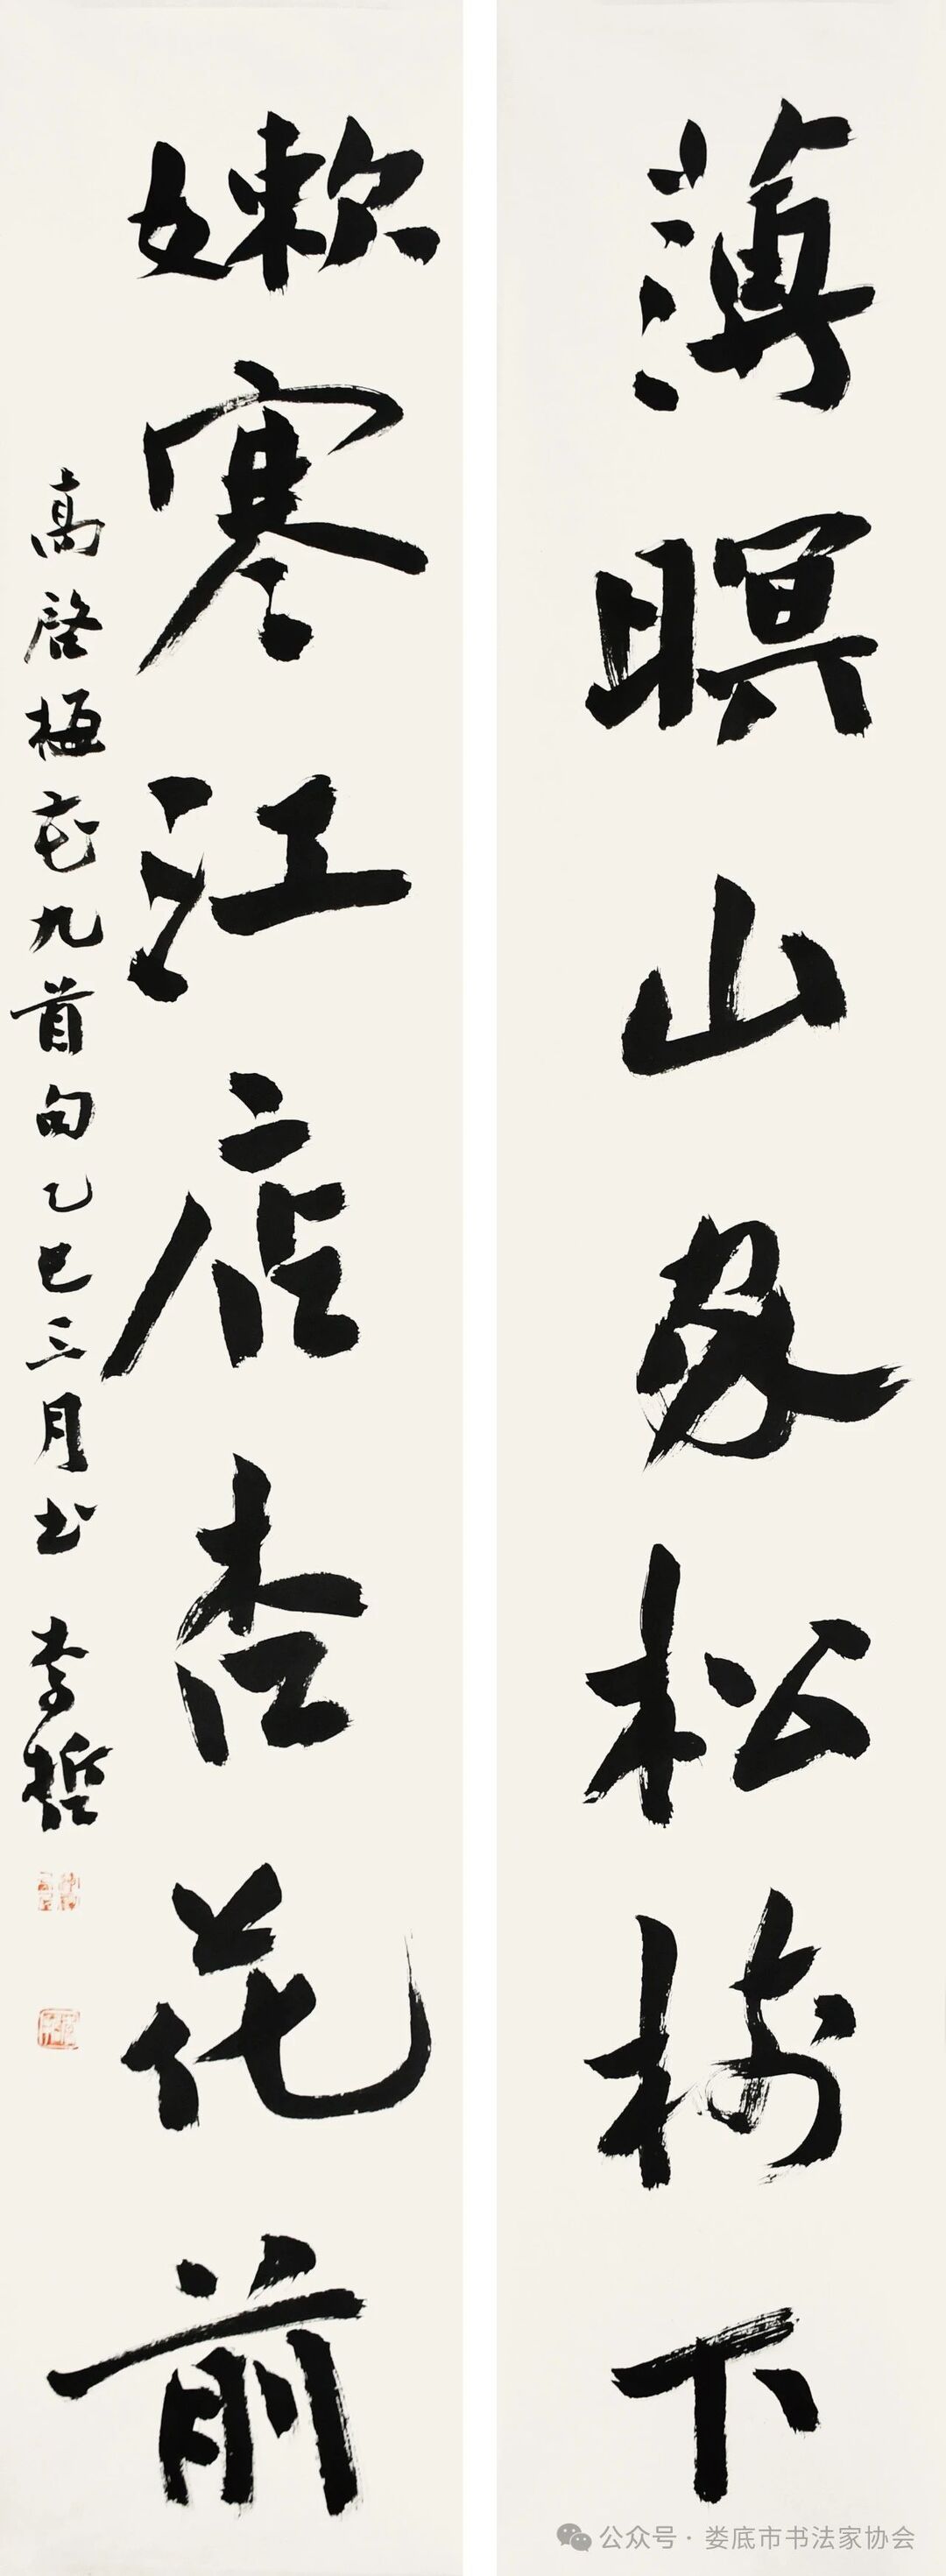 薄暝山家松樹下
嫩寒江店杏花前
高啓梅花九首句乙巳三月书 李哲
公众号 · 娄底市书法家协会